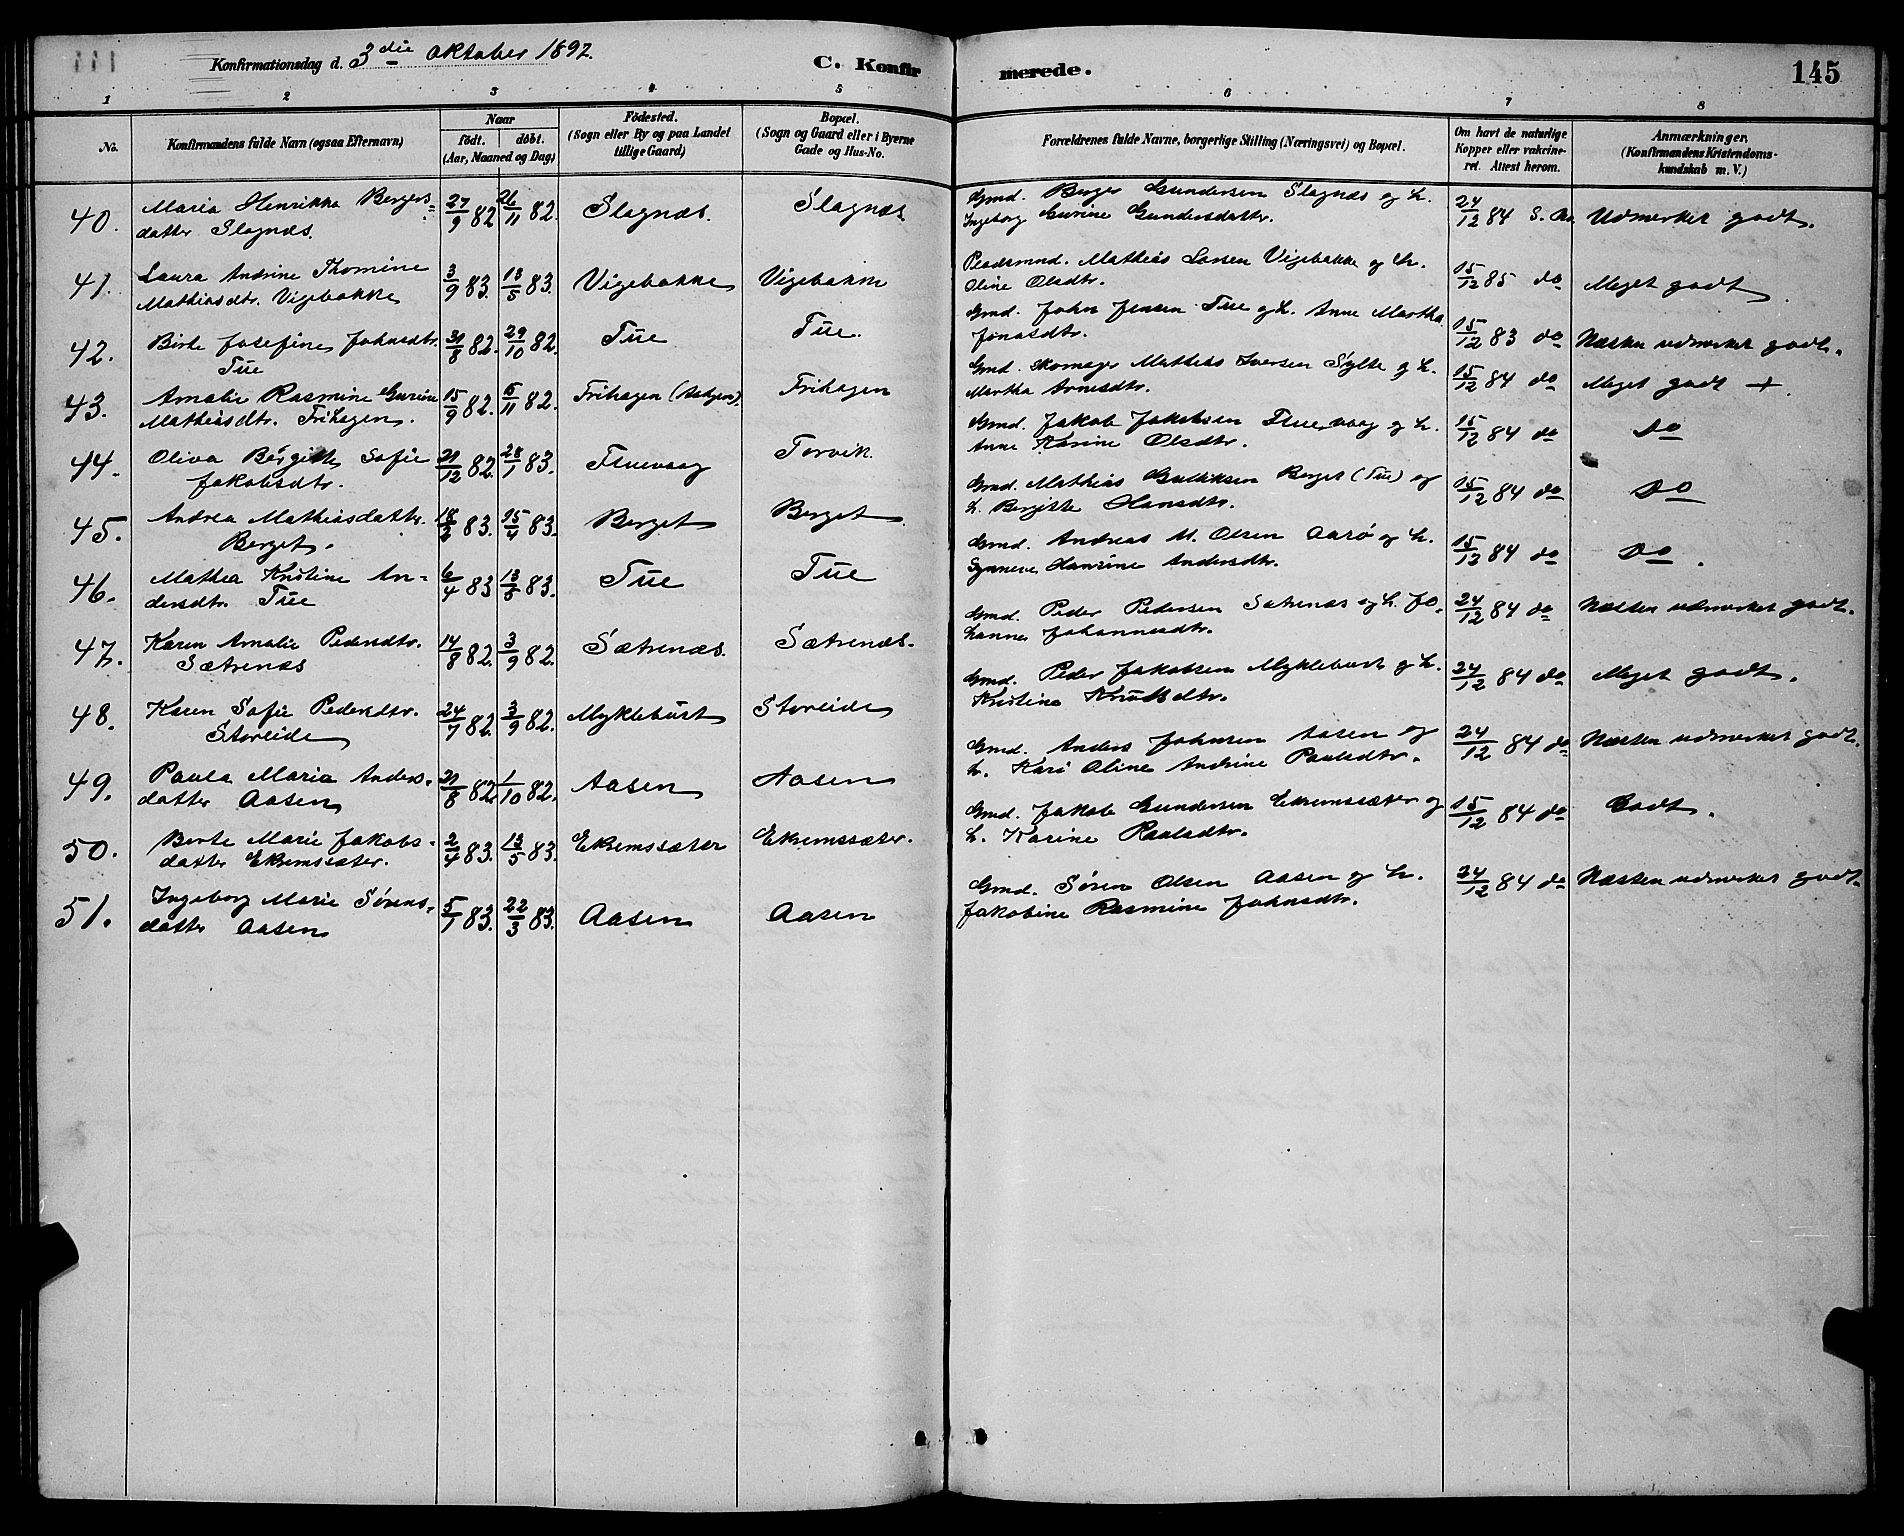 Konfirmationsdag d. 3die Oktober 1897.
C. Konfir
merede.
145
1 2 3 4 5 6 7 8
No.
Konfirmandens fulde Navn (ogsaa Efternavn)
Naar
født. døbt.
(Aar, Maaned og Dag)
Fødested.
(Sogn eller By og paa Landet
tillige Gaard)
Bopæl.
(Sogn og Gaard eller i Byerne
Gade og Hus-No.
Forældrenes fulde Navne, borgerlige Stilling (Næringsvei) og Bopæl.
Om havt de naturlige
Kopper eller vakcine-
ret. Attest herom.
Anmærkninger,
(Konfirmandens Kristendoms-
kundskab m. V.)
40. Maria Henrikka Bergers- 27/9 82 26/11 82. Slagnæs. Slagnæs Gmd. Berger Gundersen Slagnæs og h. 24/12 84 S. Aa. Udmerket godt.
datter Slagnæs. Ingeborg Gurine Gundersdattr.
41. Laura Andrine Thomine 3/9 83. 13/5 83. Vigebakke Vigebakke Pladsmnd. Mathias Larsen Vigebakke og h. 15/12 85 do Meget godt.
Mathiasdtr. Vigebakke Oline Olsdtr.
42. Birte Josefine Johnsdtr. 31/8 82. 29/10 82. Tue Tue. Gmd. John Jensen Tue og h. Anne Martha 15/12 83 do Næsten udmerket godt.
Tue Jonasdtr.
43. Amalie Rasmine Gurine 15/9 82. 5/11 82. Frihagen Frihagen Gmd. Skomager Mathias Iversen Sylte og h. 15/12 84 do Meget godt +.
Mathiasdtr. Frihagen. Martha Arnesdtr.
44. Oliva Bergitte Sofie 21/12 82. 28/1 83. Tluevaag Torvik. Gmd. Jakob Jakobsen Tluevaag og h. 15/12 84 do Do
Jakobsdtr. Anne Karine Olsdtr.
45. Andrea Mathiasdattr. 18/2 83. 15/4 83. Berget Berget Gmd. Mathias Gulliksen Berget (Tue) og 15/12 84 do Do
Berget. h. Bergitte Hansdtr.
46. Mathea Kristine An- 6/4 83 13/5 83. Tue Tue Gmd. Andreas M. Olsen Aarø og h. 15/12 84 do Do.
dersdtr. Tue Synneve Hansine Andersdtr.
47. Karen Amalie Pedersdtr. 14/8 82. 3/9 82. Sætrenæs. Sætrenæs. Gmd. Peder Pedersen Sætrenæs og h. Jo- 24/12 84 do Næsten udmerket godt.
Sætrenæs hanne Johannesdtr.
48. Karen Sofie Pedersdtr. 24/7 82. 3/9 82. Myklebust Storeide Gmd. Peder Jakobsen Myklebust og h. 24/12 84 do Meget godt.
Storeide Kristine Knutsdtr.
49. Paula Maria Anders- 21/8 82. 1/10 82. Aasen Aasen Gmd. Anders Johnsen Aasen og 24/12 84 do Næsten udmerket godt.
datter Aasen h. Kari Oline Andrine Paulsdtr.
50. Berte Marie Jakobs- 2/4 83. 13/5 83. Ekremssæter Ekremssæter. Gmd. Jakob Gundersen Ekremssæter og 15/12 84 do Godt.
datter Ekremssæter. h. Karine Paulsdtr.
51. Ingeborg Marie Sørens- 5/1 83. 22/3 83. Aasen Aasen Gmd. Søren Olsen Aasen og h. 24/12 84 do Næsten udmerket godt.
datter Aasen Jakobine Rasmine Johnsdtr.